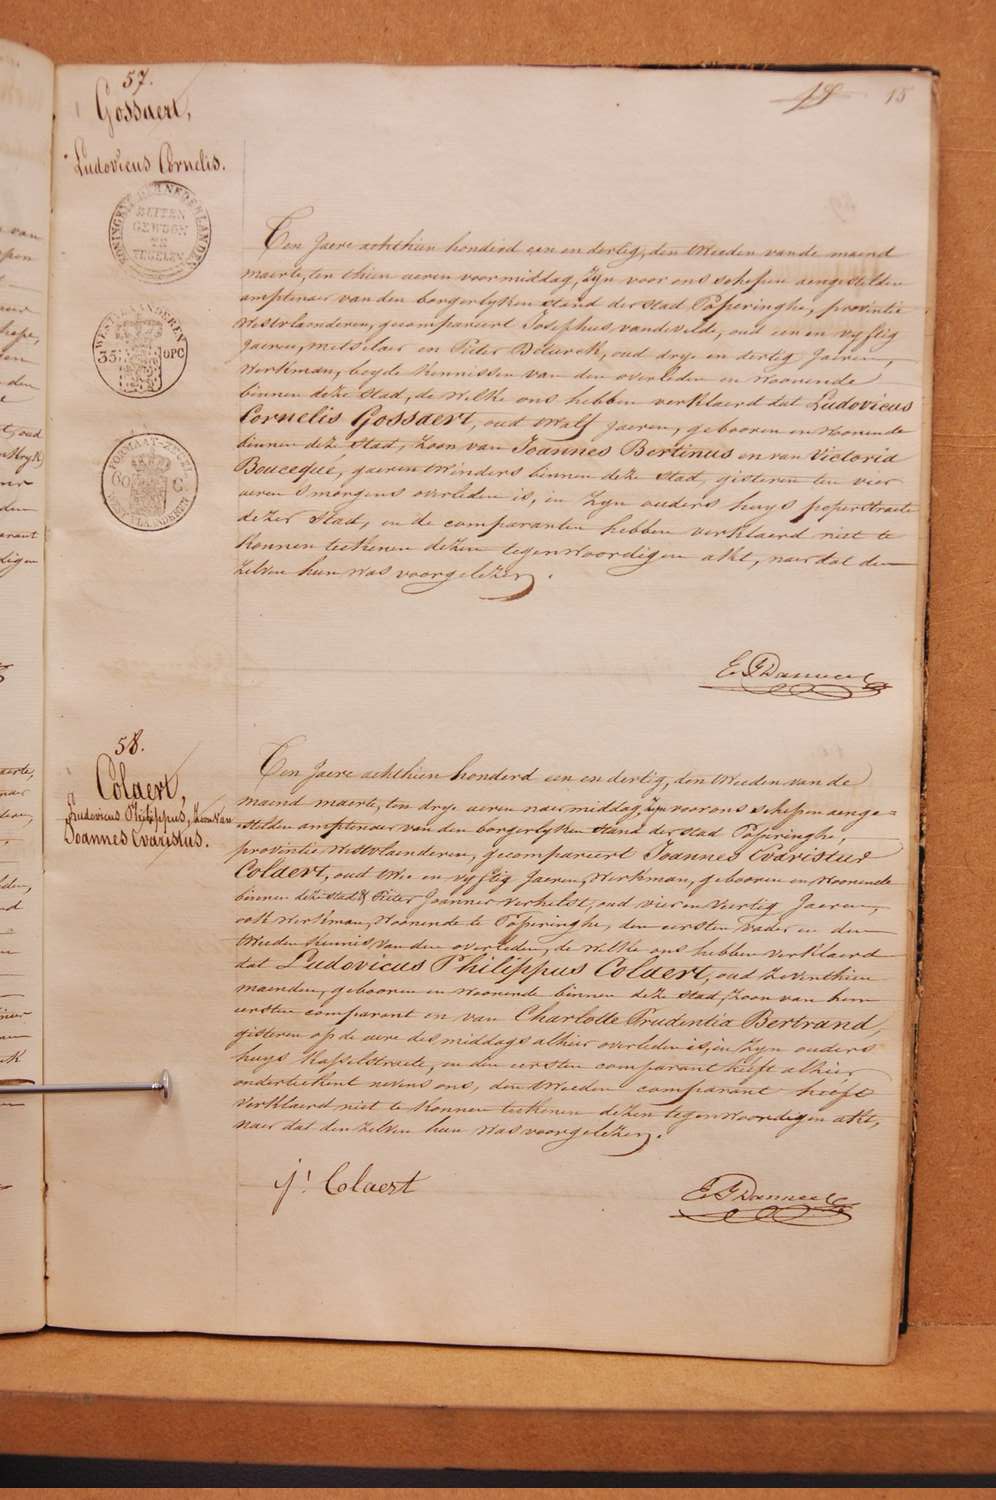 15
57.
Gossaert,
Ludovicus Cornelis.
KONINGRYK DER NEDERLANDEN
BUITEN
GEWOON
TE
ZEGELEN
WEST-VLAANDEREN
35 OPC
FORMAAT-ZEGEL
60 C.
WEST-VLAANDEREN
Ten Jaere achthien honderd een en dertig, den tweeden van de maend
maerte, ten thien ueren voormiddag, zyn voor ons schepen aengestelden
amptenaer van den borgerlyken stand der stad Poperinghe, provintie
Westvlaenderen, gecompareert Josephus vandevelde, oud een en vyftig
Jaeren, metselaer en Pieter Deturck, oud drye en dertig Jaeren,
Werkman, beyde kennissen van den overleden en Woonende
binnen deze stad, de welke ons hebben verklaerd dat Ludovicus
Cornelis Gossaert, oud twalf jaeren, gebooren en Woonende
binnen deze stad, zoon van Joannes Bertinus en van Victoria
Boucequé, gaeren Winders binnen deze stad, gisteren ten vier
ueren s'morgens overleden is, in zyn ouders huys poperstraete
dezer stad, en de comparanten hebben verklaerd niet te
konnen teekenen dezen tegenwoordigen akt, naer dat den
zelven hun was voorgelezen.
58.
Colaert,
Ludovicus Philippus, zoon van
Joannes Evaristus.
Ten Jaere achthien honderd een en dertig, den tweeden van de
maend maerte, ten drye ueren naermiddag, zyn voor ons schepen aenge=
=stelden amptenaer van den borgerlyken stand der stad Poperinghe,
provintie Westvlaenderen, gecompareert Joannes Evaristus
Colaert, oud twee en vyftig Jaeren, Werkman, gebooren en Woonende
binnen deze stad & Pieter Joannes Verhelst, oud vier en veertig Jaeren,
ook Werkman, Woonende te Poperinghe, den eersten vader en den
tweeden kennis van den overleden, de welke ons hebben verklaerd
dat Ludovicus Philippus Colaert, oud zeventhien
maenden, gebooren en woonende binnen deze stad, zoon van hem
eersten comparant en van Charlotte Prudentia Bertrand,
gisteren op de uere des middags alhier overleden is, in zyn ouders
huys Kasselstraete, en den eersten comparant heeft alhier
onderteekent nevens ons, den tweeden comparant heeft
verklaerd niet te konnen teekenen dezen tegenwoordigen akt,
naer dat den zelven hun was voorgelezen.
j! Colaert